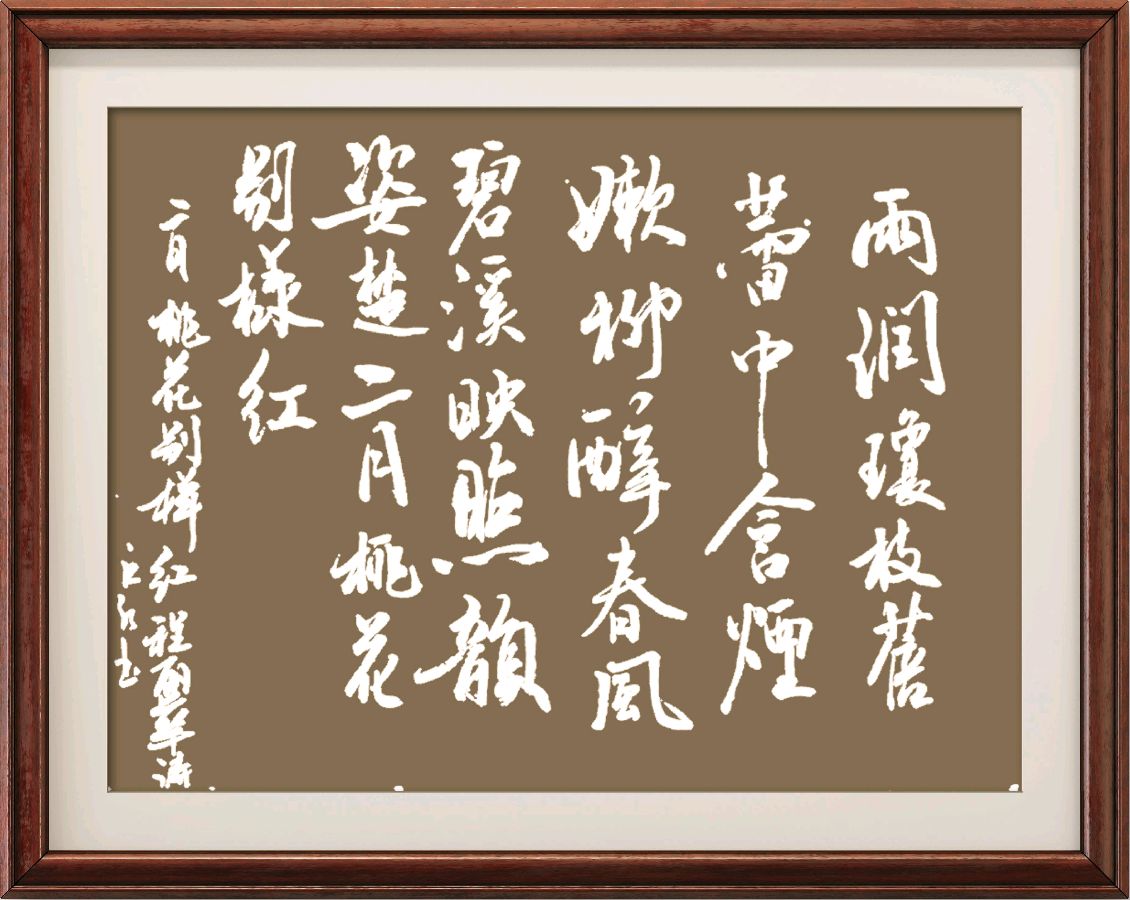 雨润瓊枝蓓
蕾中含煙
嫩柳醉春風
碧溪映照韻
姿楚二月桃花
别様红
二月桃花别样红程
书